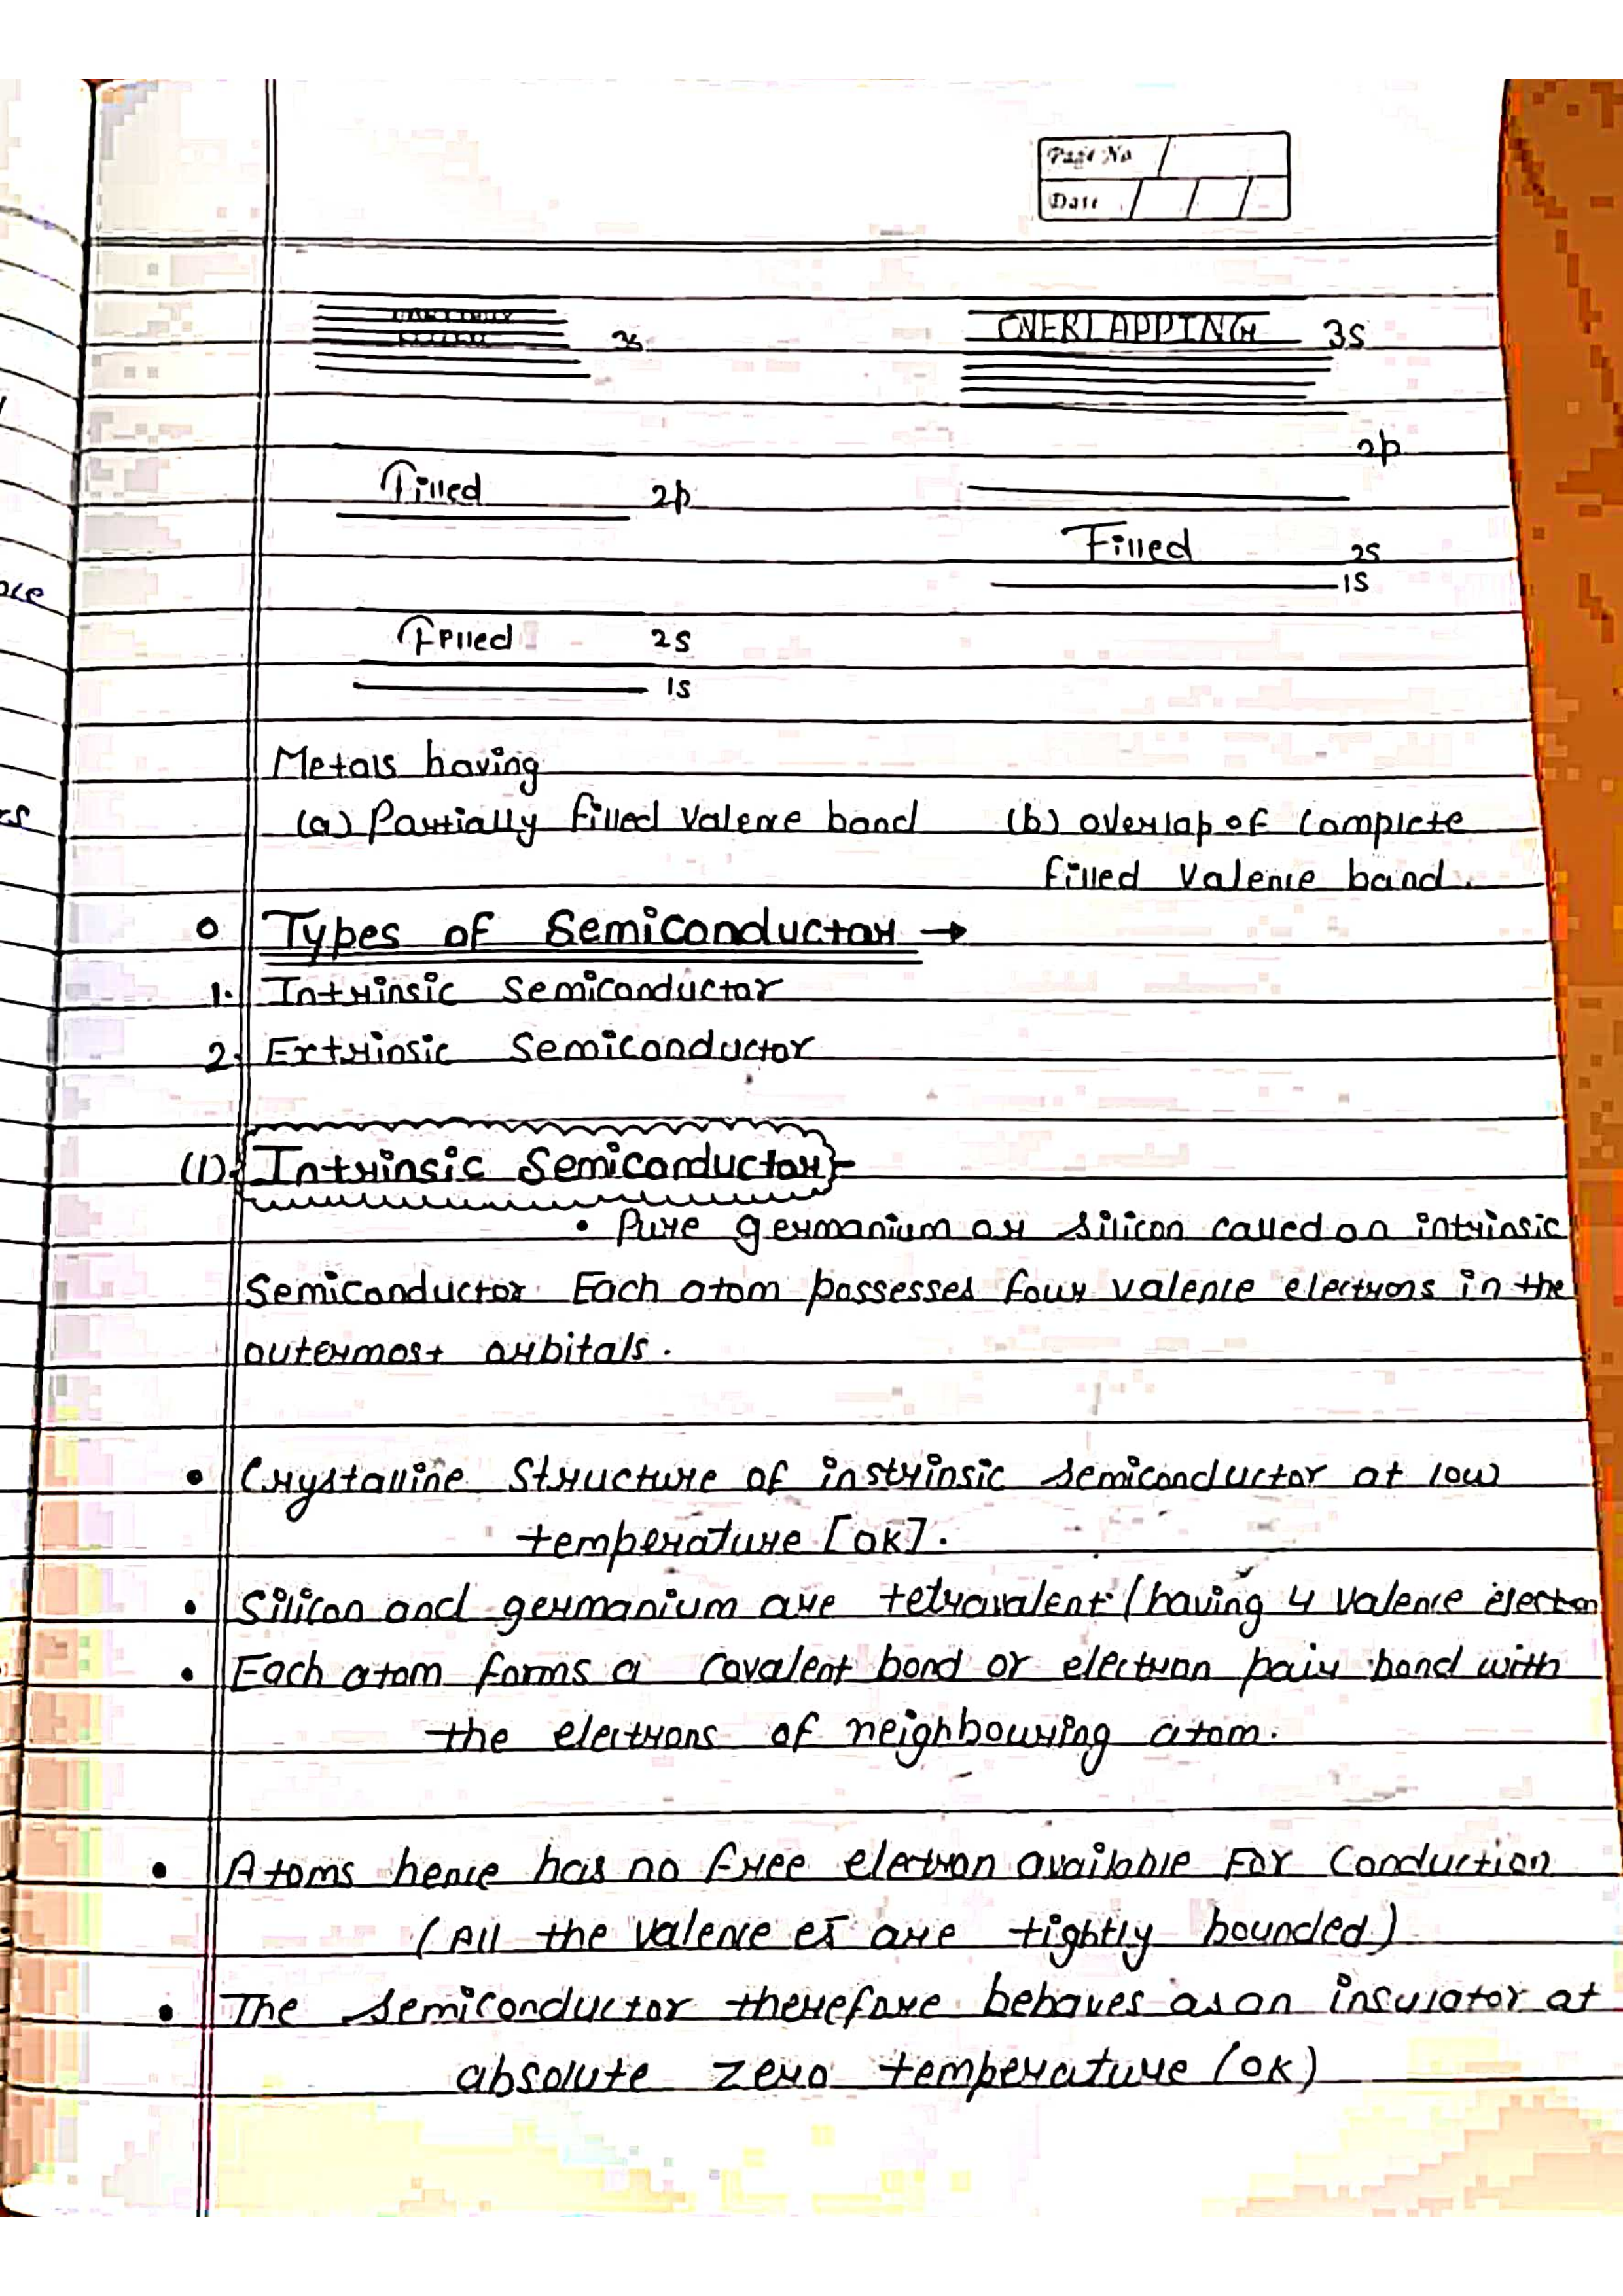 Page No
Date
PARTIALLY
FILLED 3s
OVERLAPPING 3S
2p
Filled 2p
Filled 2S
1S
Filled 2S
1S
Metals having
(a) Partially filled Valence band (b) overlap of complete
filled valence band.
Types of Semiconductor →
1. Intrinsic Semiconductor
2. Extrinsic Semiconductor
(1). Intrinsic Semiconductor -
• Pure germanium or silicon called an intrinsic
Semiconductor. Each atom possesses four valence electrons in the
outermost orbitals.
• Crystalline Structure of instrinsic semiconductor at low
temperature [0K].
• Silicon and germanium are tetravalent (having 4 valence electron
• Each atom forms a covalent bond or electron pair bond with
the electrons of neighbouring atom.
• Atoms hence has no free electron available For Conduction
(All the valence es̄ are tightly bounded)
• The semiconductor therefore behaves as an insulator at
absolute zero temperature (0K)